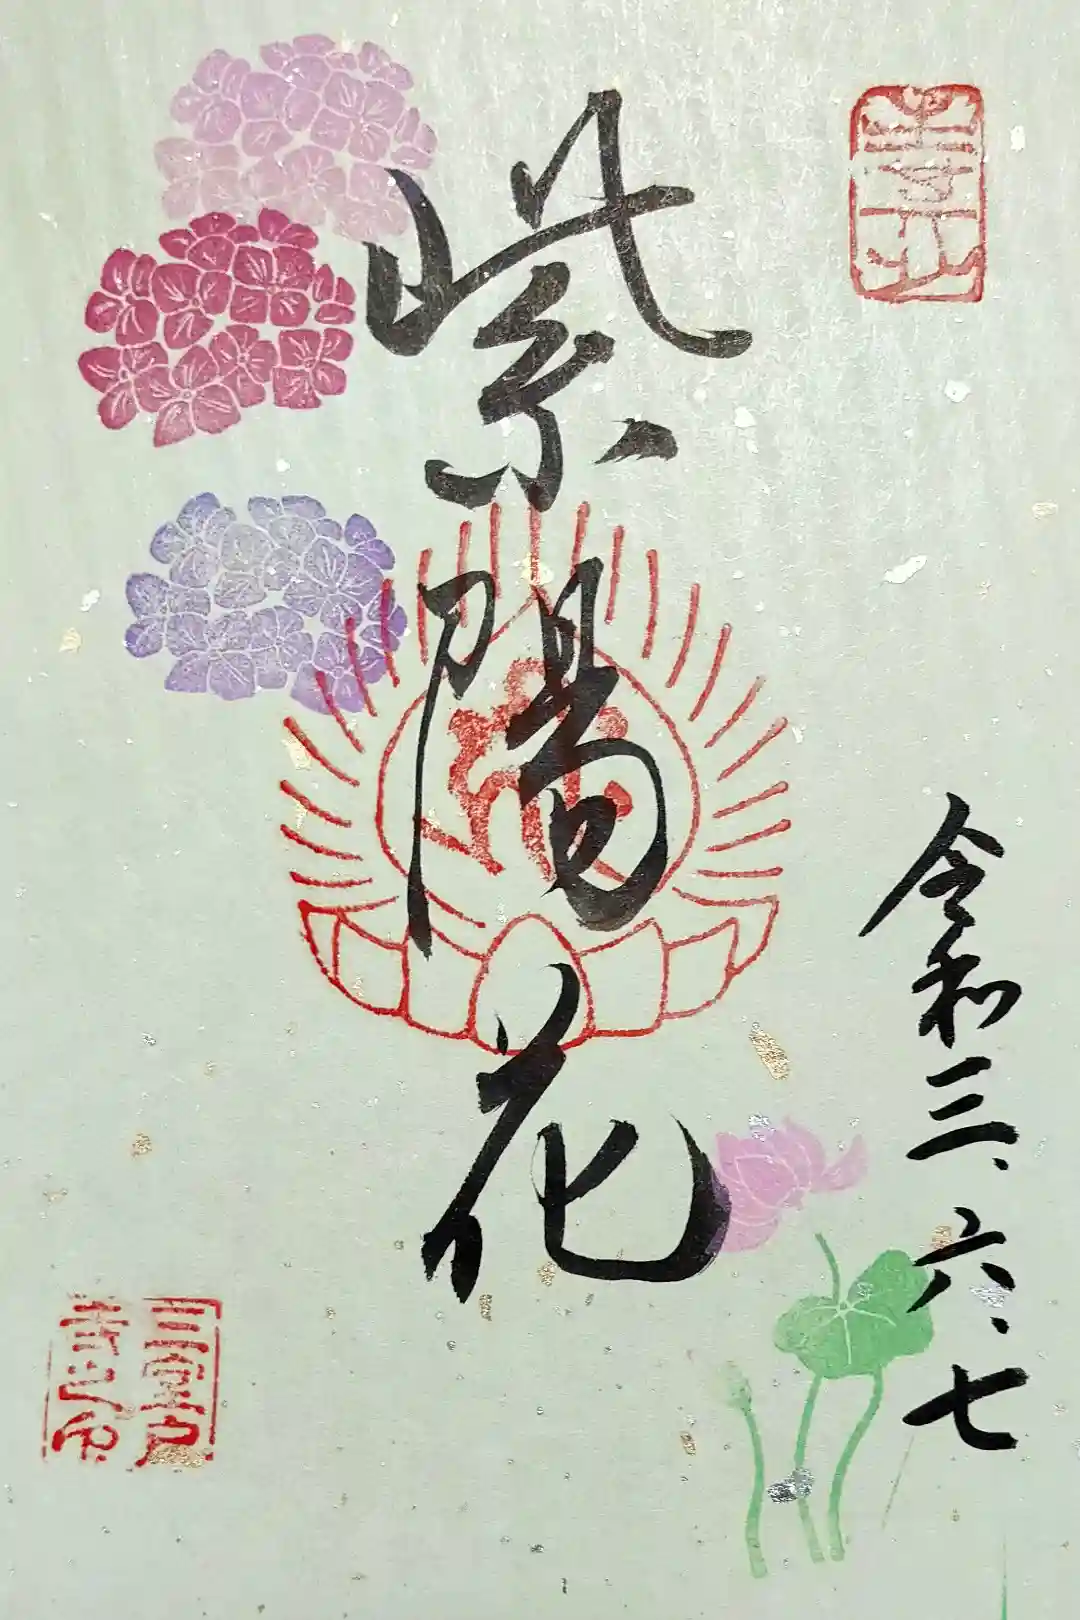 令和三、六、七
紫陽花